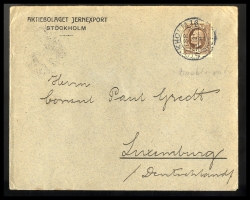 AKTIEBOLAGET JERNEXPORT
STOCKHOLM
Herrn
Consul Paul
Luxemburg
/Deutschland/